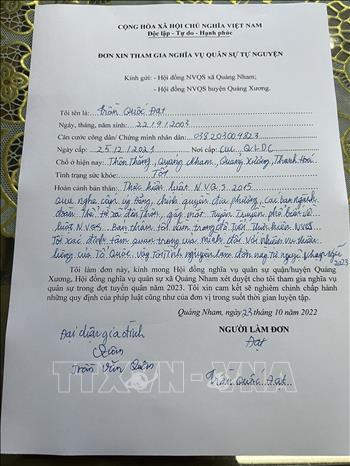 CỘNG HÒA XÃ HỘI CHỦ NGHĨA VIỆT NAM
Độc lập - Tự do - Hạnh phúc
ĐƠN XIN THAM GIA NGHĨA VỤ QUÂN SỰ TỰ NGUYỆN
Kính gửi: - Hội đồng NVQS xã Quảng Nham;
- Hội đồng NVQS huyện Quảng Xương.
Tôi tên là: Trần Quốc Đạt
Ngày, tháng, năm sinh: 22/9/2003
Căn cước công dân/ Chứng minh nhân dân: 038203004823
Ngày cấp: 25/12/2021 Nơi cấp: Cục QLDC
Chỗ ở hiện nay: Thôn Thắng, Quảng Nham, Quảng Xương, Thanh Hoá
Tình trạng sức khỏe: Tốt
Hoàn cảnh bản thân: Thực hiện luật N.V.Q.S 2015
qua nghe cán bộ Đảng, chính quyền địa phương, các ban ngành
đoàn thể, xã đến thôn, gặp mặt tuyên truyền phổ biến về
luật NVQS. Bản thân tôi nằm trong độ tuổi thực hiện NVQS
Tôi xác định tầm quan trọng của mình đối với nhiệm vụ thiêng
liêng của Tổ Quốc. Vậy Tôi Tình nguyện làm đơn này tự nguyện nhập ngũ
2023
Tôi làm đơn này, kính mong Hội đồng nghĩa vụ quân sự quận/huyện Quảng
Xương, Hội đồng nghĩa vụ quân sự xã Quảng Nham xét duyệt cho tôi tham gia nghĩa
vụ quân sự trong đợt tuyển quân năm 2023. Tôi xin cam kết sẽ nghiêm chỉnh chấp hành
những quy định của pháp luật cũng như của đơn vị trong suốt thời gian huyện tập.
Quảng Nham, ngày 23 tháng 10 năm 2022
Đại diện gia đình
NGƯỜI LÀM ĐƠN
Đạt
Trần Văn
Trần Quốc Đạt
TTXVN-VNA